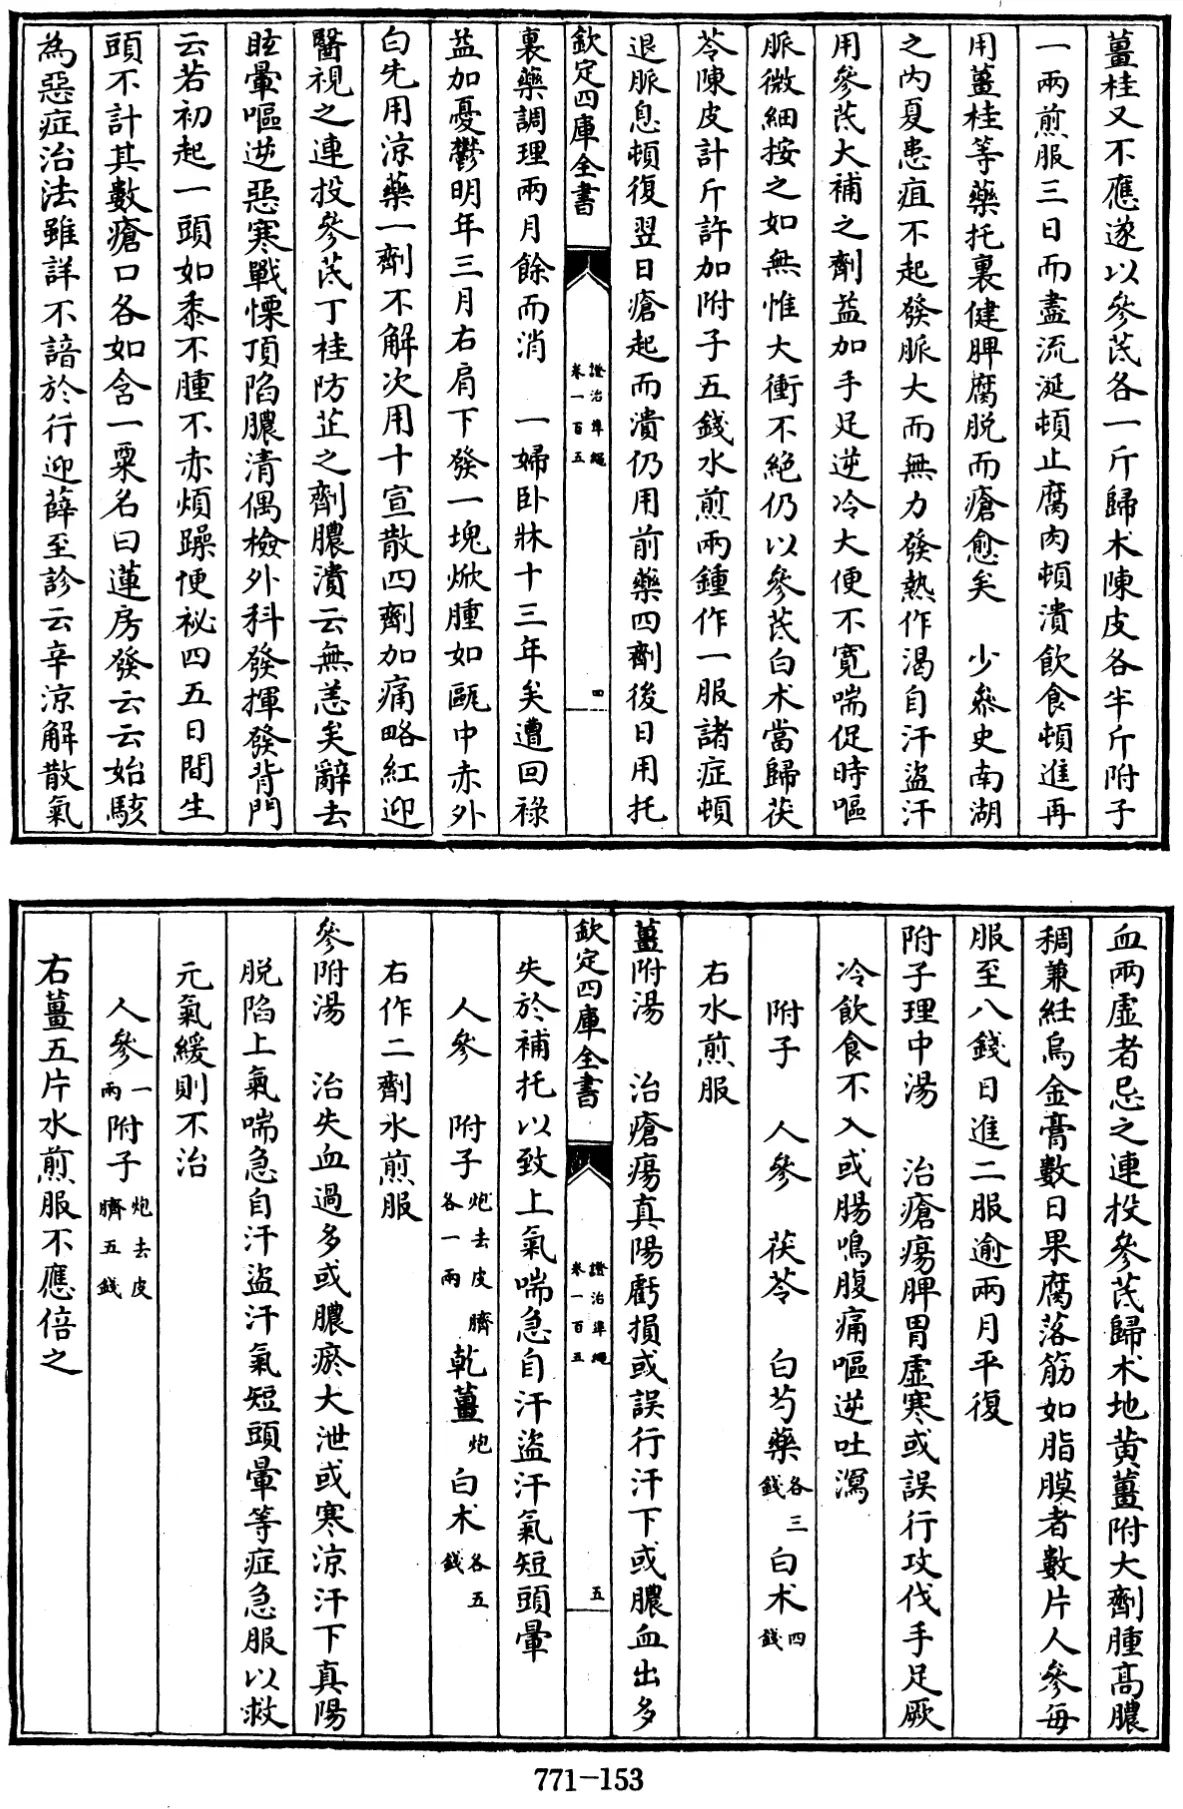 薑桂又不應遂以參芪各一斤歸术陳皮各半斤附子
一兩煎服三日而盡流涎頓止腐肉頓潰飲食頓進再
用薑桂等藥托裏健脾腐脫而瘡愈矣　少叅史南湖
之内夏患疽不起發脈大而無力發熱作渴自汗盜汗
用參芪大補之劑益加手足逆冷大便不寬喘促時嘔
脈微細按之如無惟大衝不絕仍以參芪白术當歸茯
苓陳皮計斤許加附子五錢水煎兩鍾作一服諸症頓
退脈息頓復翌日瘡起而潰仍用前藥四劑後日用托
欽定四庫全書
證治準繩
卷一百五
四
裏藥調理兩月餘而消　一婦卧牀十三年矣遭回祿
益加憂鬱明年三月右肩下發一塊焮腫如甌中赤外
白先用涼藥一劑不解次用十宣散四劑加痛略紅迎
醫視之連投參芪丁桂防芷之劑膿潰云無恙矣辭去
眩暈嘔逆惡寒戰慄頂陷膿清偶檢外科發揮發背門
云若初起一頭如黍不腫不赤煩躁便祕四五日間生
頭不計其數瘡口各如含一粟名曰蓮房發云云始駭
為惡症治法雖詳不諳於行迎薛至診云辛涼解散氣
血兩虛者忌之連投參芪歸术地黃薑附大劑腫高膿
稠兼紝烏金膏數日果腐落筋如脂膜者數片人參每
服至八錢日進二服逾兩月平復
附子理中湯　治瘡瘍脾胃虛寒或誤行攻伐手足厥
冷飲食不入或腸鳴腹痛嘔逆吐瀉
附子　人參　茯苓　白芍藥各三錢　白术四錢
右水煎服
薑附湯　治瘡瘍真陽虧損或誤行汗下或膿血出多
欽定四庫全書
證治準繩
卷一百五
五
失於補托以致上氣喘急自汗盜汗氣短頭暈
人參　附子炮去皮臍各一兩　乾薑炮　白术各五錢
右作二劑水煎服
參附湯　治失血過多或膿瘀大泄或寒涼汗下真陽
脫陷上氣喘急自汗盜汗氣短頭暈等症急服以救
元氣緩則不治
人參一兩　附子炮去皮臍五錢
右薑五片水煎服不應倍之
771-153